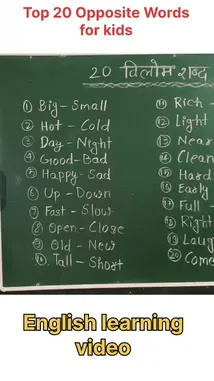 Top 20 Opposite Words
for kids
20 विलोम शब्द
① Big - Small
② Hot - Cold
③ Day - Night
④ Good - Bad
⑤ Happy - Sad
⑥ Up - Down
⑦ Fast - Slow
⑧ Open - Close
⑨ Old - New
⑩ Tall - Short
⑪ Rich -
⑫ Light
⑬ Near
⑭ Clean
⑮ Hard
⑯ Easy
⑰ Full -
⑱ Right
⑲ Laug
⑳ Come
English learning
video